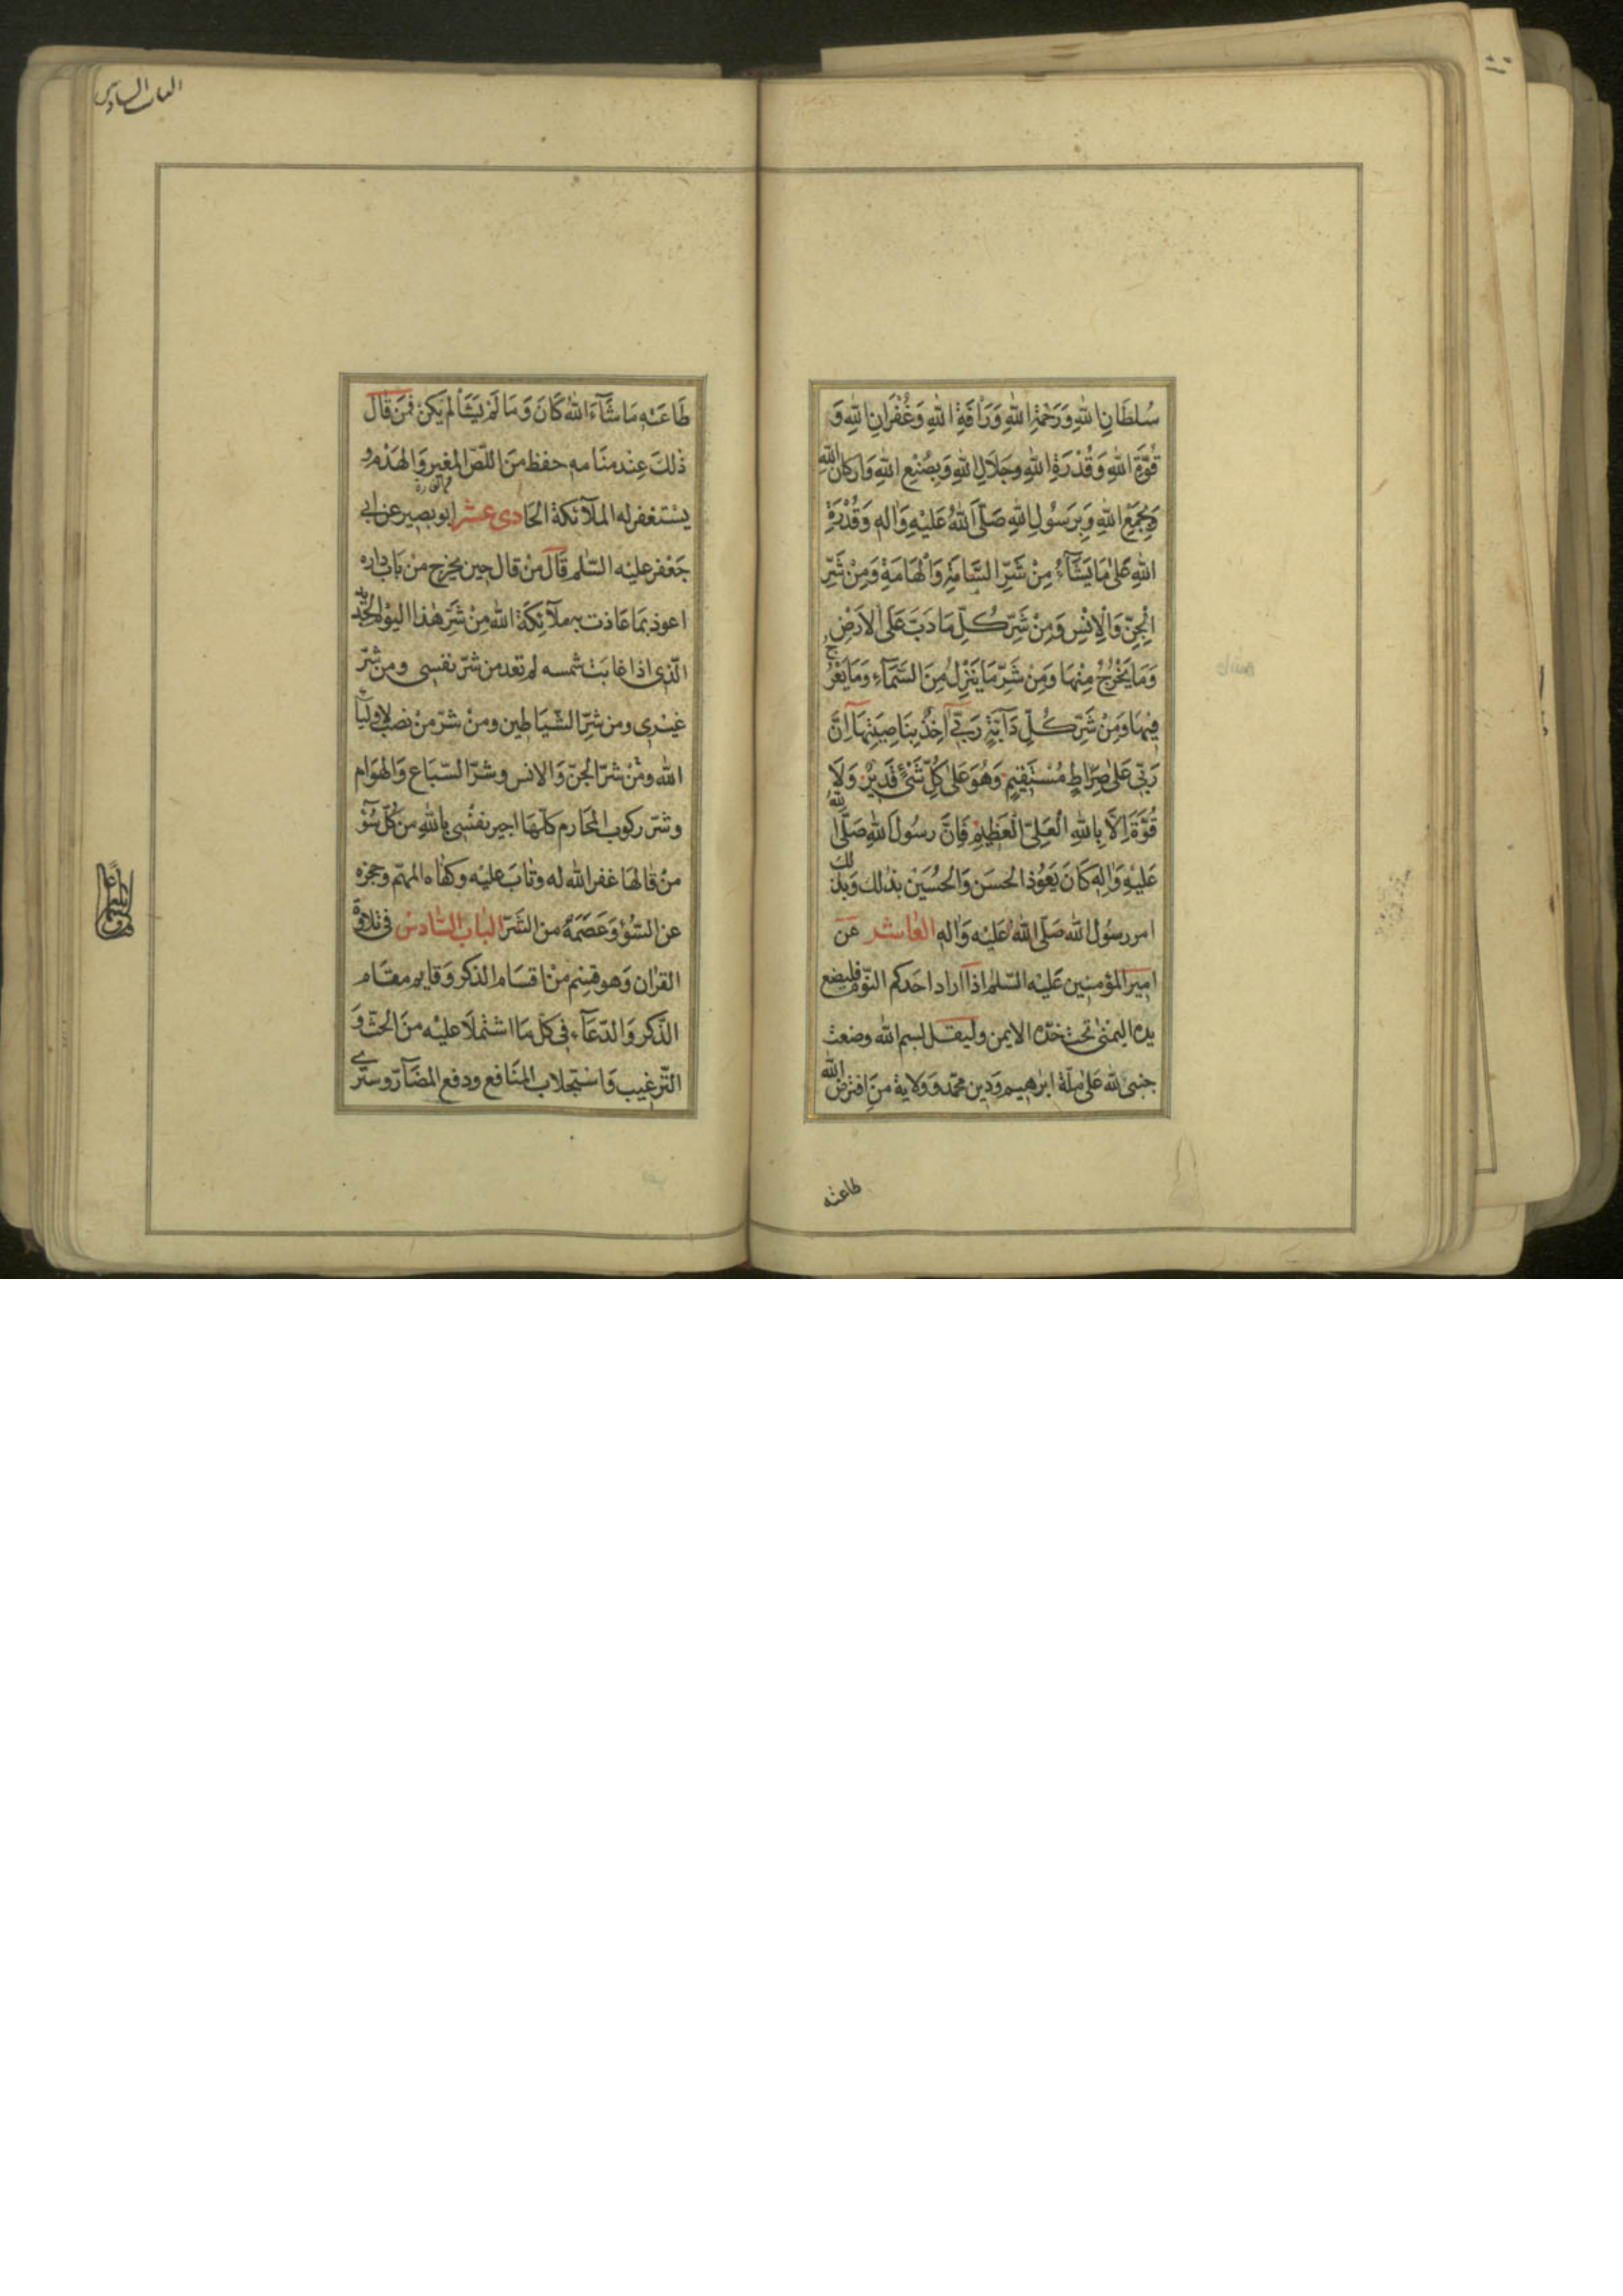 سُلطَانِ اللهِ وَرَحْمَةِ اللهِ وَرَأفَةِ اللهِ وَغُفْرَانِ اللهِ وَ
قُوَّةِ اللهِ وَقُدْرَةِ اللهِ وجَلَالِ اللهِ وَبِصُنْعِ اللهِ وَاَركانِ اللهِ
وَبِجَمْعِ اللهِ وَبِرَسُولِ اللهِ صَلَّى اللهُ عَلَيْهِ وَالهِ وَقُدْرَةِ
اللهِ عَلىٰ مَا يَشَآءُ مِنْ شَرِّ السَّامَّةِ وَالْهَامَّةِ وَمِنْ شَرِّ
الْجِنِّ وَالْاِنْسِ وَمِنْ شَرِّ كُلِّ مَا دَبَّ عَلَى الاَرْضِ
وَمَا يَخْرُجُ مِنْهَا وَمِنْ شَرِّ مَا يَنْزِلُ مِنَ السَّمَآءِ وَمَا يَعْرُجُ
فِيْهَا وَمِنْ شَرِّ كُلِّ دَآبَّةٍ رَبّىٓ اٰخِذٌ بِنَاصِيَتِهَآ اِنَّ
رَبّى عَلىٰ صِرَاطٍ مُسْتَقِيْمٍ وَهُوَ عَلىٰ كُلِّ شَىْءٍ قَدِيْرٌ وَلَا
قُوَّةَ اِلَّا بِاللهِ الْعَلِىّ الْعَظِيْمِ فَاِنَّ رسُولَ اللهِ صَلَّى اللهُ
عَلَيْهِ وَالِهِ كَانَ يَعَوّذ الحسَن وَالحُسَيْن بذلك وَبذلك
امر رسُول الله صَلَّى اللهُ عَلَيْه وَاله العَاشر عَن
امير المؤمنِين عَليْه السّلم اذآ اراد احَدكم النّوم فليضع
يده اليمْنىٰ تحت خدّه الايمن وليقل بسم الله وضعت
جنبى لله عَلىٰ ملّة ابرٰهيم وَدين محمّد وَولاية مَنِ افترض الله
طاعته
الباب السادس
طَاعَتَه مَا شَآءَ اللهُ كَانَ وَمَا لَمْ يَشَأْ لم يَكن فمَن قَالَ
ذٰلكَ عنْد منَامه حفظ منَ اللّصّ المغير وَالهَدْم و
يستغفر له الملآئكة الحَادى عشر ابو بصير عن ابى
جَعْفر عليْه السّلم قَالَ منْ قال حين يخرج منْ بَاب داره
اعوذ بمَا عَاذت به ملآئكَة الله مِنْ شَرّ هٰذا اليَوْم الجَديد
الّذى اذا غابَت شمسه لم تعد من شرّ نفسى ومن شرّ
غيْرى ومن شرّ الشّيَاطين ومنْ شرّ منْ نصَب لاوليآء
الله ومْن شرّ الجنّ وَالانس وشرّ السّبَاع وَالهوَام
وشرّ ركوب المحَارم كلّهَا اجير نفْسى بالله من كلّ سُوْء
منْ قالهَا غفر الله له وتابَ عليْه وكفاه المهمّ وحجزه
عن السّوْء وَعَصَمَهُ من الشَرّ البَاب السَّادسْ فى تلاوة
القرْان وَهو قسْم منْ اقسَام الذكر وَقايم مقَام
الذّكر وَالدّعَآء فى كلّ مَا اشتملَا عليْه منَ الحثّ وَ
التّرغيب وَاستجلاب المنَافع ودفع المضَآرّ وسترى